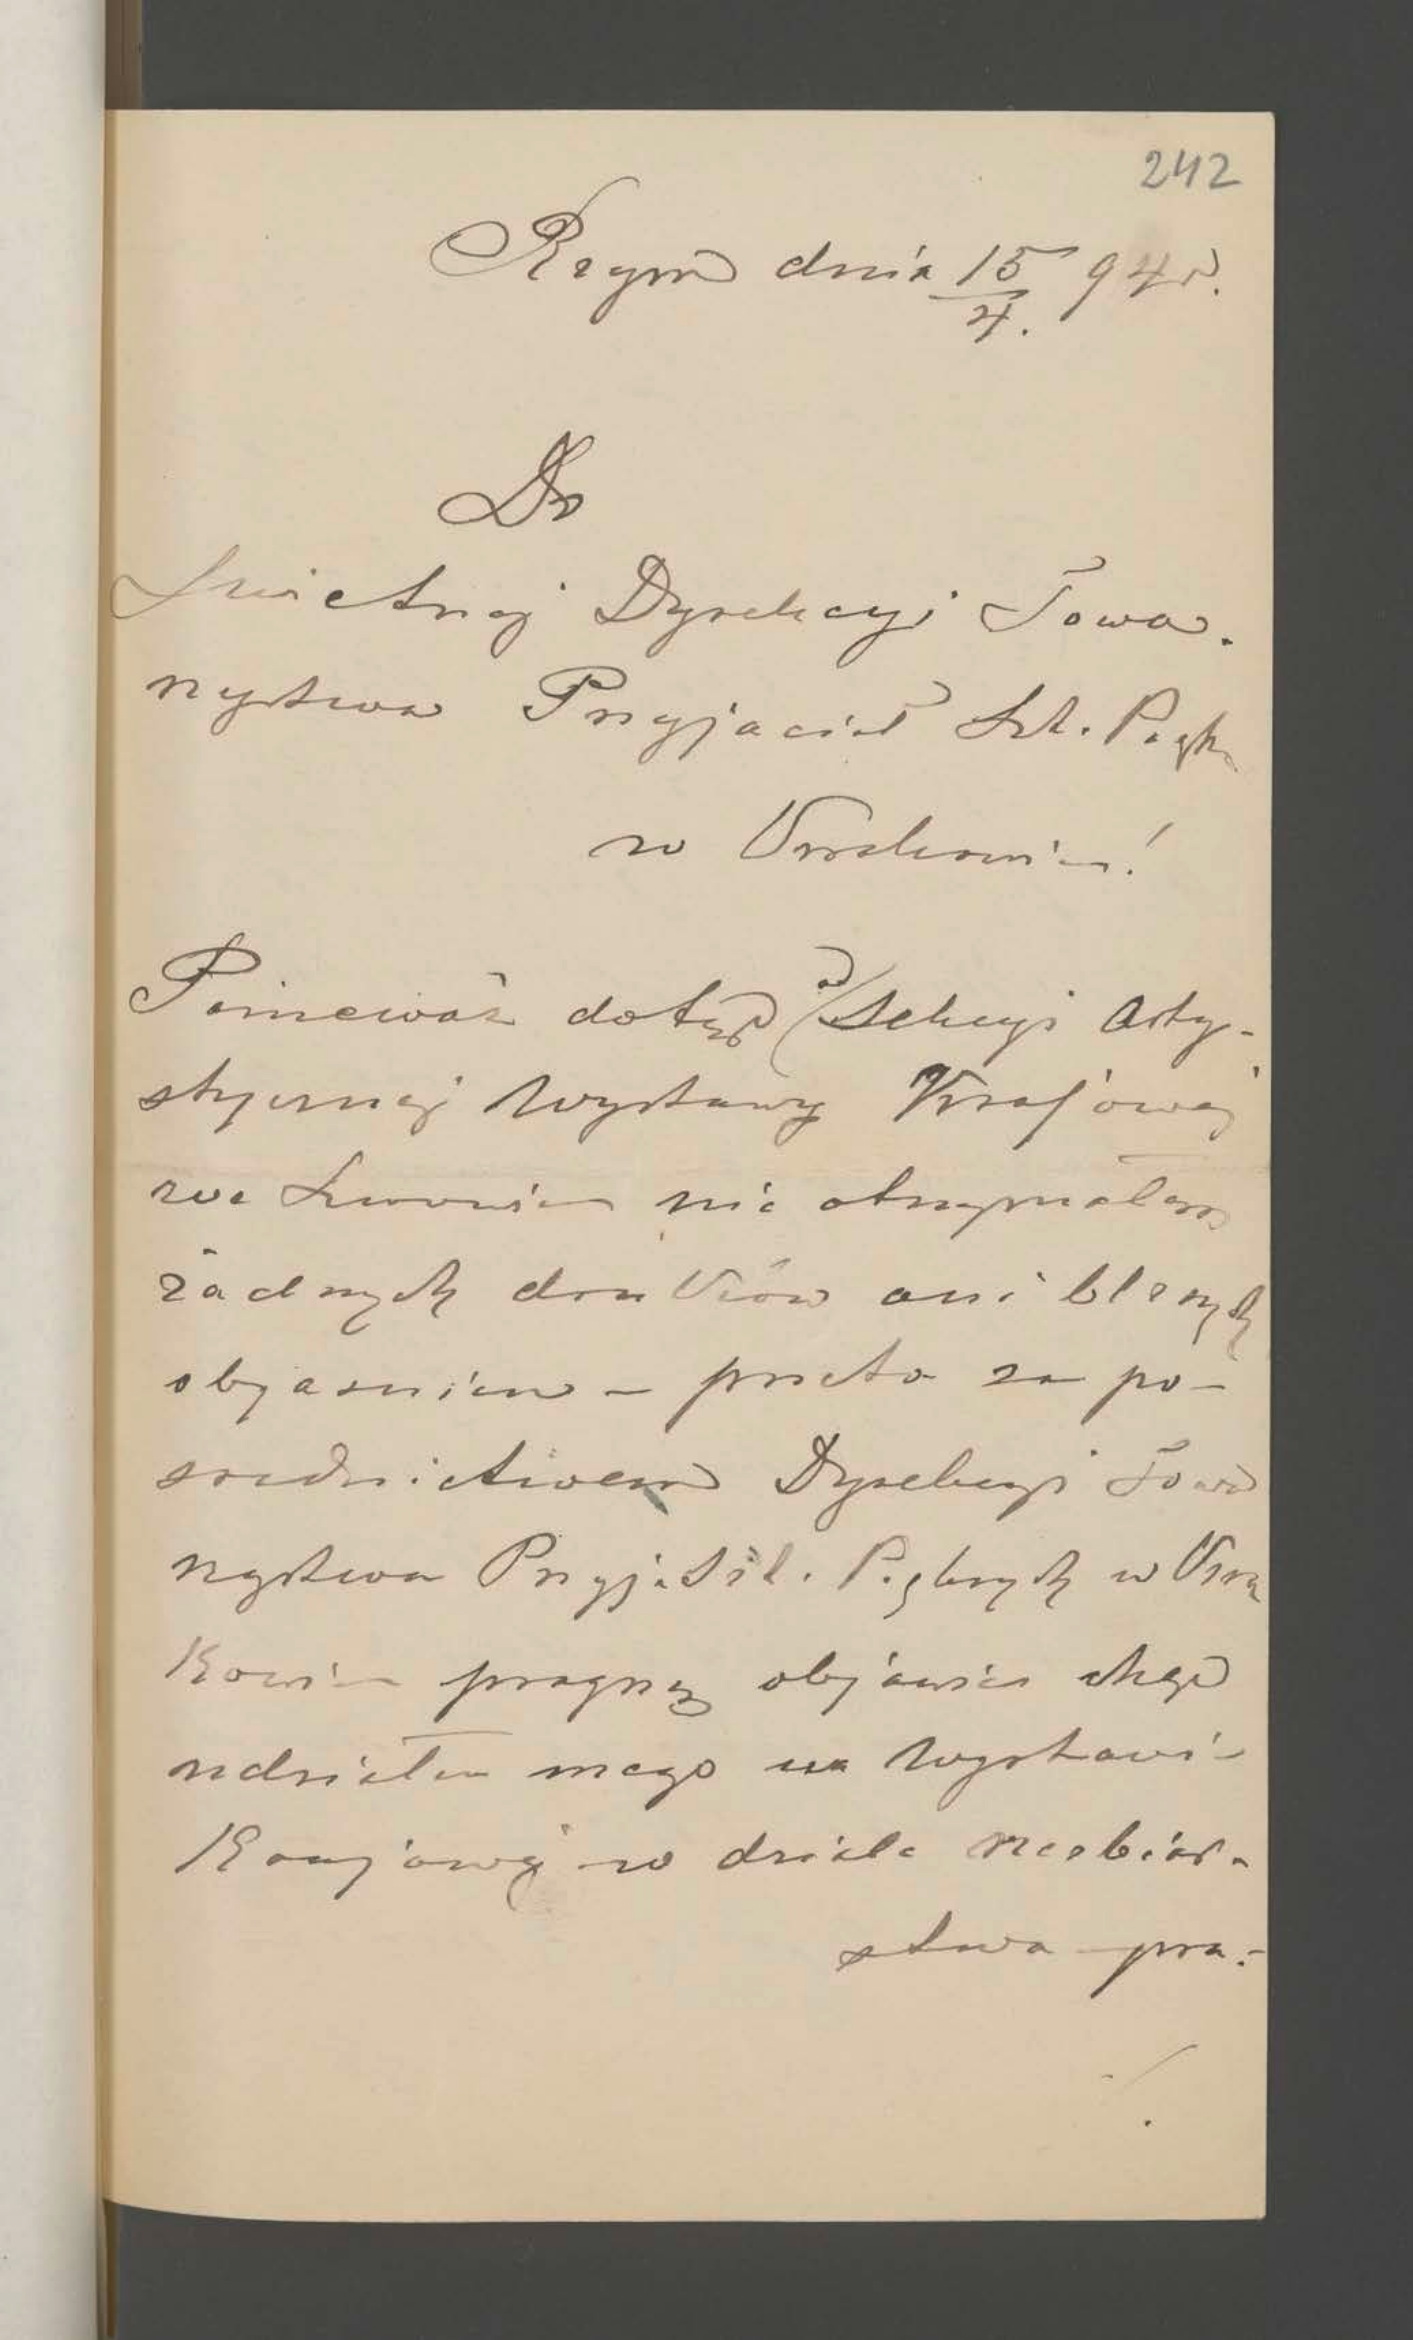 242
Rzym dnia 15/4. 94 r.
Do
Świetnej Dyrekcyi Towa-
rzystwa Przyjaciół Szt. Piękn.
w Krakowie!
Ponieważ dotąd od Sekcyi Arty-
stycznej Wystawy Krajowej
we Lwowie nie otrzymałem
żadnych druków ani bliższych
objasnien – przeto za po-
srednictwem Dyrekcyi Towa
rzystwa Przyj. Szt. Pięknych w Kra
kowie pragnę objawić chęć
udziału mego na Wystawie
Krajowej w dziale rzeźbiar-
stwa pra-